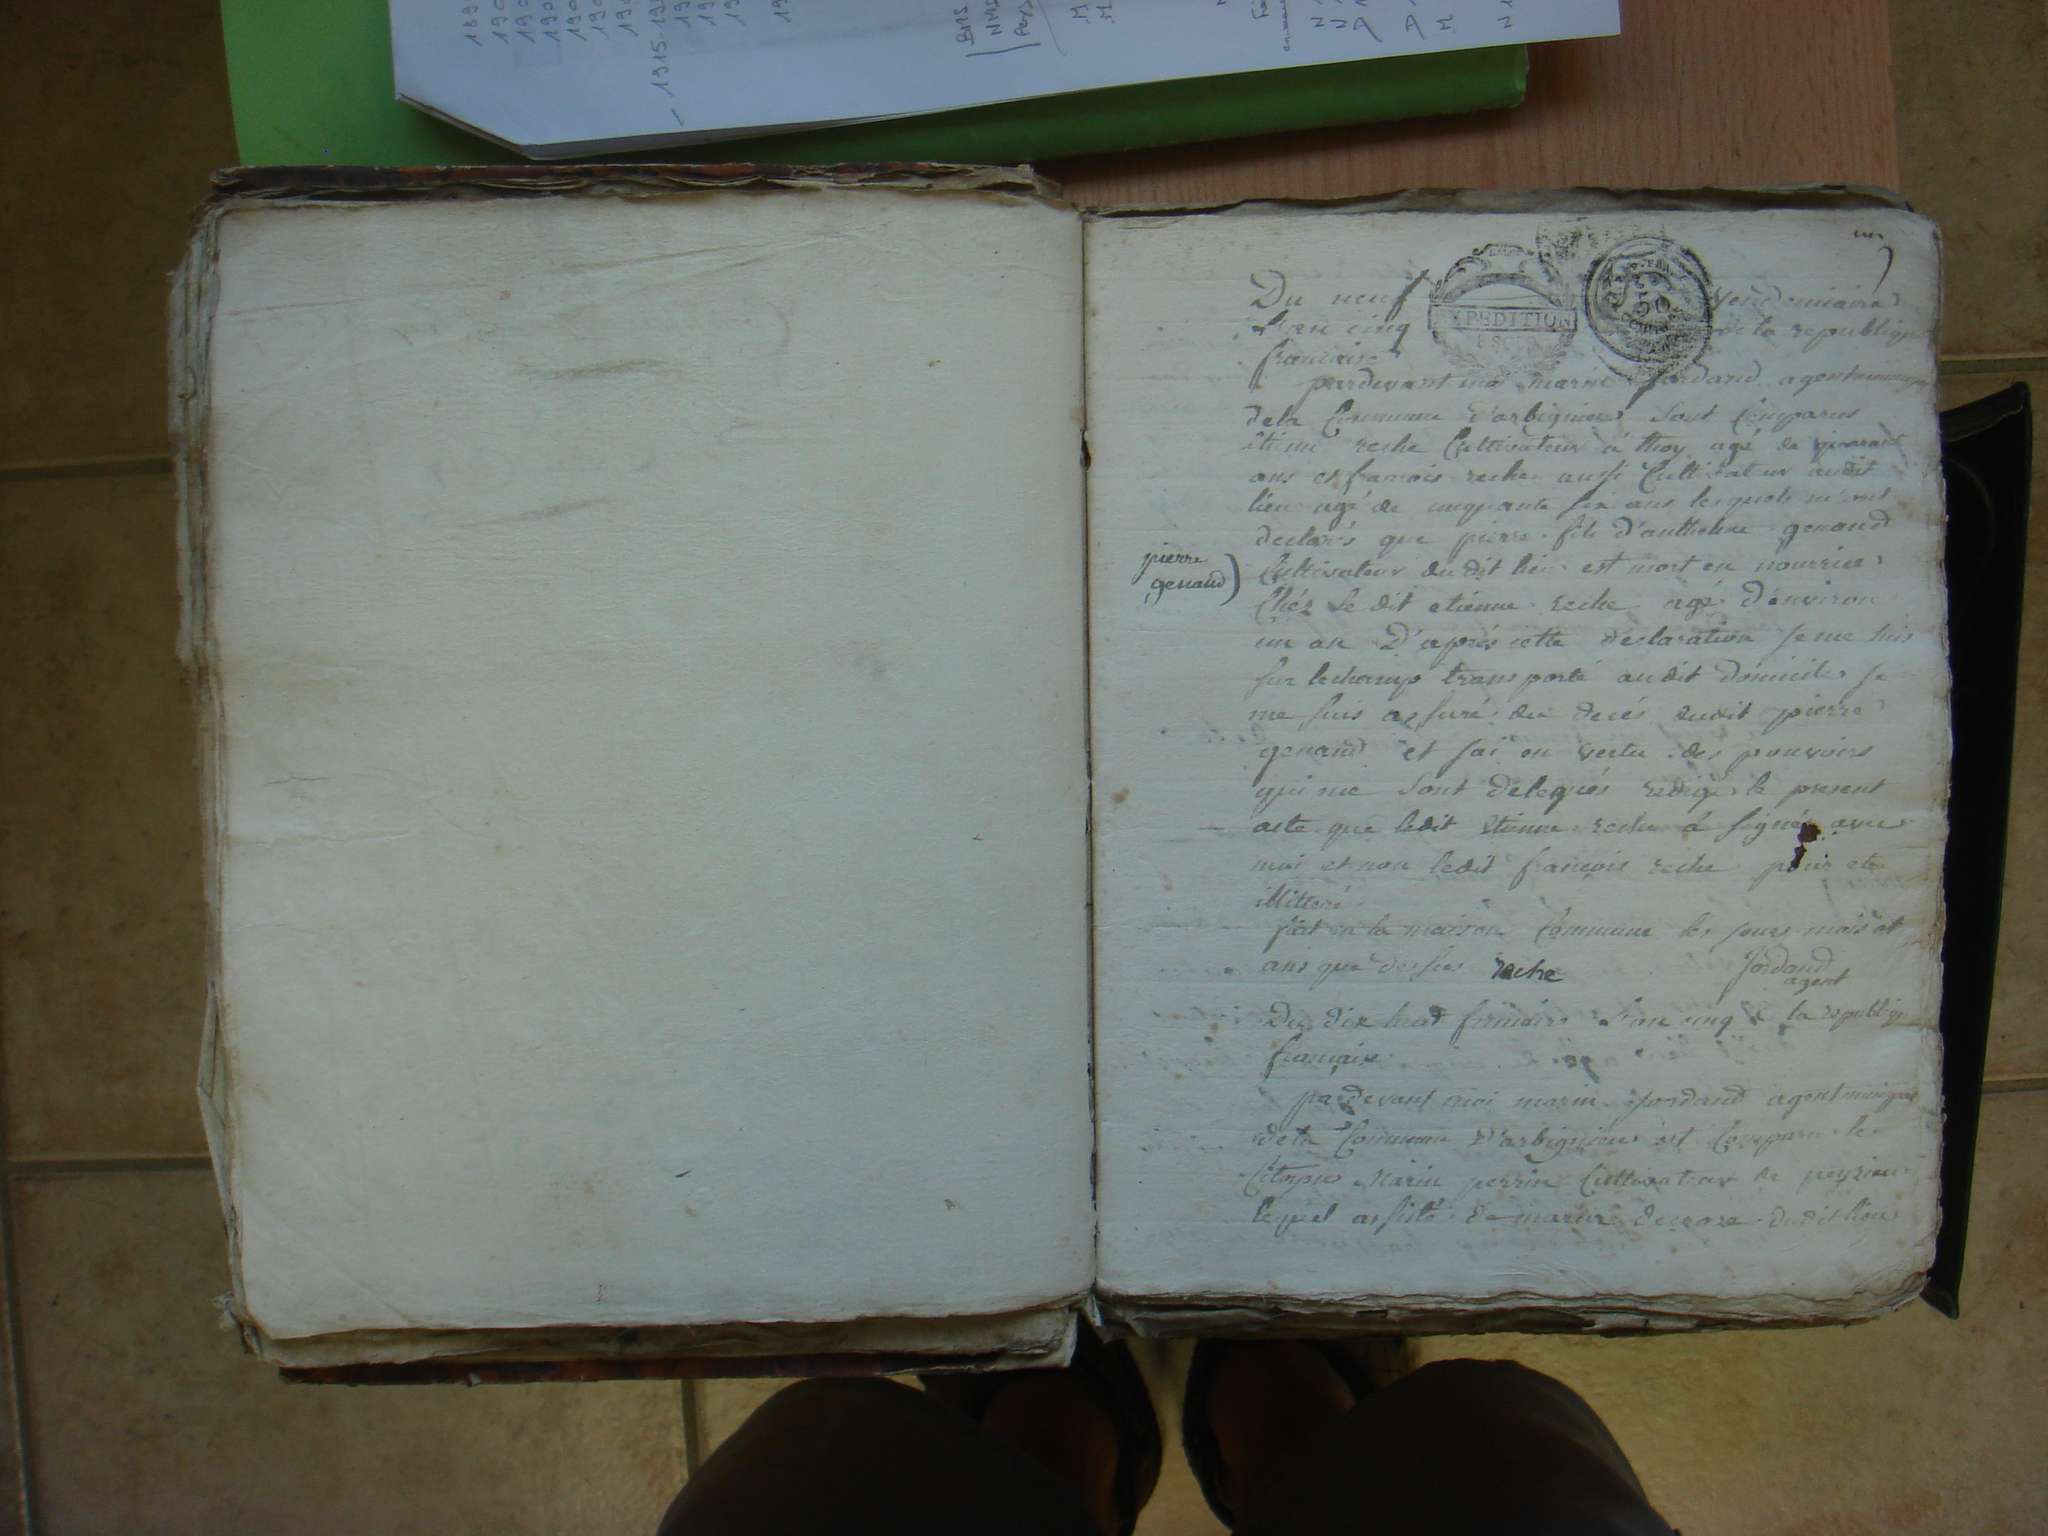 189
190
190
190
190
190
1915-19
BMS
NMD
M
M
Du neuf vendemiaire
l'an cinq de la republique
francaise
EXPEDITION
50
pardevant moi marin Jordand agent municipal
dela Commune d'arbignieu sont Comparus
etiene reche Cultivateur à thoy agé de
ans et francois reche aussi Cultivateur audit
lieu agé de cinquante six ans lesquels m'ont
declarés que pierre fils d'anthelme genaud
pierre
genaud)
Cultivateur dudit lieu est mort en nourrice
Chéz le dit etienne reche agé d'environ
un an D'après cette declaration Je me suis
sur lechamp transporté audit domicile Je
me suis assuré du decés dudit pierre
genaud et Jai en vertu des pouvoirs
qui me sont delegués redigé le present
acte que ledit etienne reche à signé avec
moi et non ledit francois reche pour etre
illitteré
fait en la maison Commune les jours mois et
ans que dessus reche Jordand
agent
Du dix huit frimaire l'an cinq de la republique
francaise
pardevant moi marin Jordand agent municipal
dela Commune d'arbignieu est Comparu le
Citoyen Marin perrin Cultivateur de peyzieu
lequel assisté de marin decroze dudit lieu